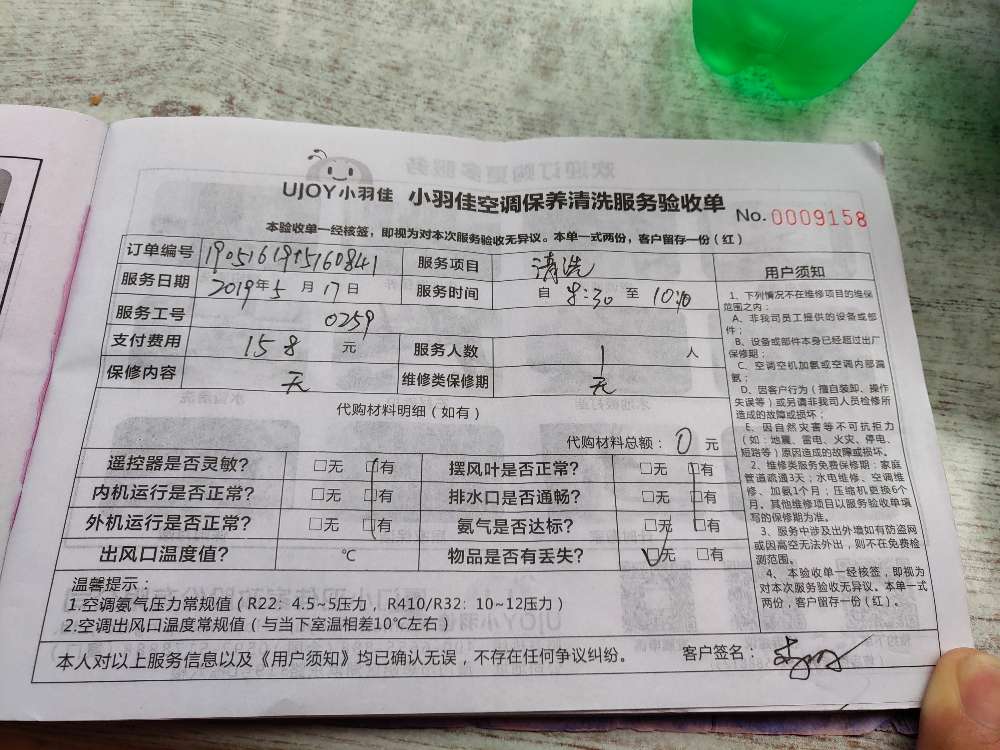 UJOY小羽佳 小羽佳空调保养清洗服务验收单 No. 0009158
本验收单一经核签，即视为对本次服务验收无异议。本单一式两份，客户留存一份（红）
订单编号 服务项目 清洗
服务日期 2019年5月17日 服务时间 自 8:30 至
服务工号 0259
支付费用 158 元 服务人数 1 人
保修内容 无 维修类保修期 无
代购材料明细（如有）
代购材料总额：0元
遥控器是否灵敏？ □无 □有 摆风叶是否正常？ □无 □有
内机运行是否正常？ □无 □有 排水口是否通畅？ □无 □有
外机运行是否正常？ □无 □有 氨气是否达标？ □无 □有
出风口温度值？ ℃ 物品是否有丢失？ □无 □有
温馨提示：
1.空调氨气压力常规值（R22：4.5~5压力，R410/R32：10~12压力）
2.空调出风口温度常规值（与当下室温相差10℃左右）
本人对以上服务信息以及《用户须知》均已确认无误，不存在任何争议纠纷。 客户签名：
用户须知
1、下列情况不在维修项目的维保
范围之内：
A、非我司员工提供的设备或部
件；
B、设备或部件本身已经超过出厂
保修期；
C、空调空机加氨或空调内部漏
氨；
D、因客户行为（擅自装卸、操作
失误等）或另请非我司人员检修所
造成的故障或损坏；
E、因自然灾害等不可抗拒力
（如：地震、雷电、火灾、停电、
短路等）原因造成的故障或损坏。
2、维修类服务免费保修期：家庭
管道疏通3天；水电维修、空调维
修、加氨1个月；压缩机更换6个
月。其他维修项目以服务验收单填
写的保修期为准。
3、服务中涉及出外增如有防盗网
或因高空无法外出，则不在免费检
测范围。
4、本验收单一经核签，即视为
对本次服务验收无异议。本单一式
两份，客户留存一份（红）。